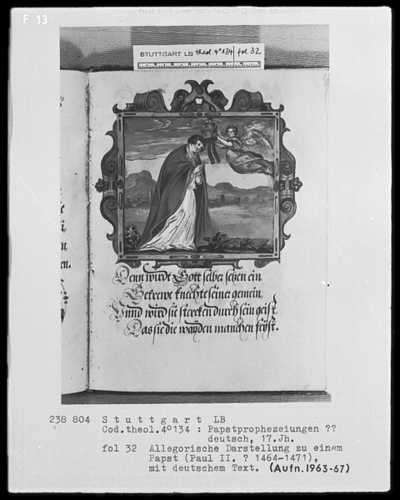 F 13
STUTTGART LB theol. 4° 134 fol 32
Denn wirdt Gott selber setzen ein
Getrewe knechte seiner gemein,
Vnnd wird sie stercken durch sein geist,
Das sie die wayden machen feyst.
238 804 Stuttgart LB
Cod.theol.4°134 : Papstprophezeiungen ??
deutsch, 17.Jh.
fol 32 Allegorische Darstellung zu einem
Papst (Paul II. ? 1464-1471),
mit deutschem Text. (Aufn.1963-67)